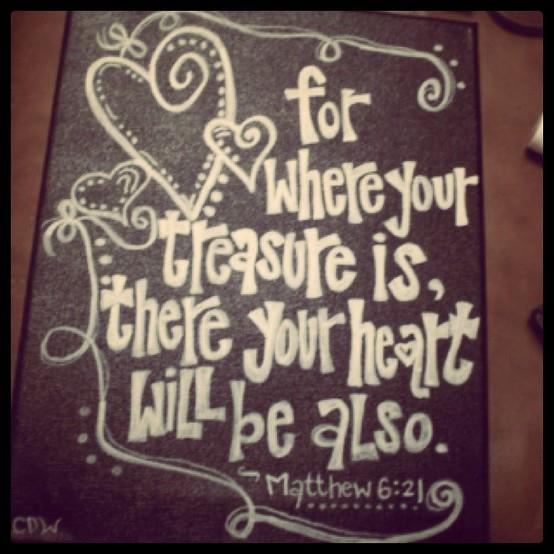 for
where your
treasure is,
there your heart
will be also.
~Matthew 6:21
CDW